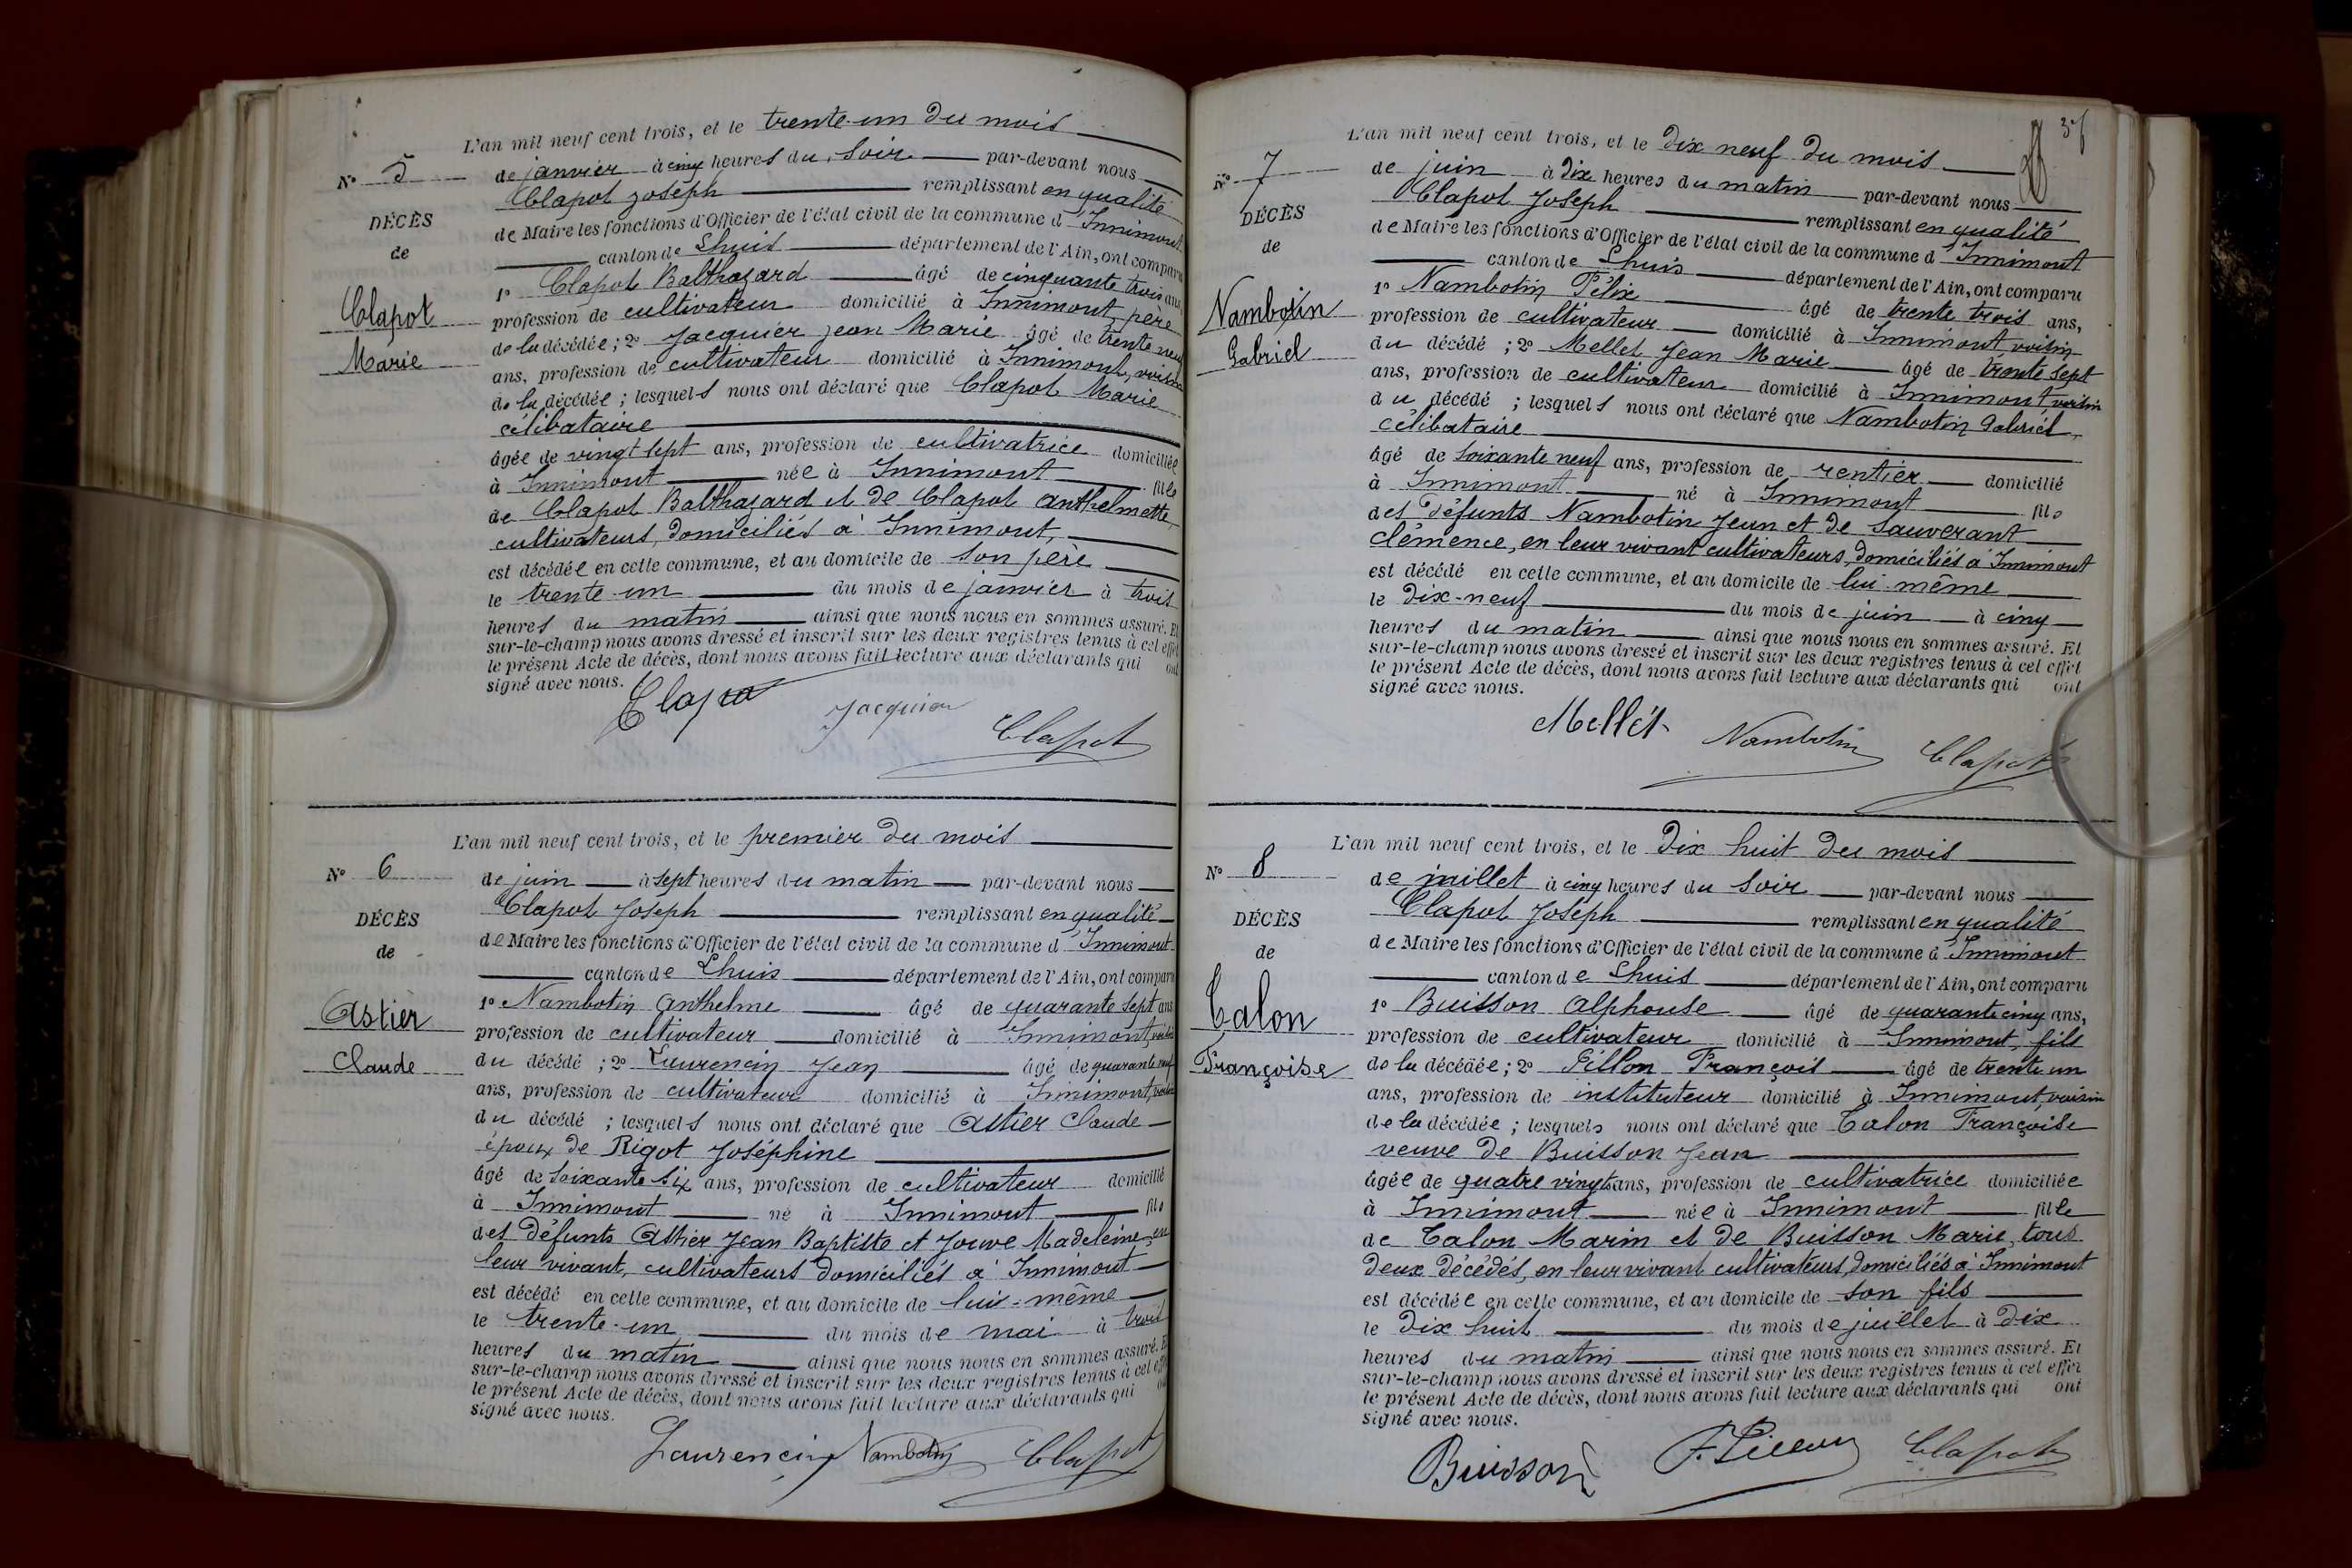 L'an mil neuf cent trois, et le trente-un du mois
N° 5 de janvier à cinq heures du soir par-devant nous
Clapot Joseph remplissant en qualité
DÉCÈS de Maire les fonctions d'Officier de l'état civil de la commune d'Innimont
de canton de Lhuis département de l'Ain, ont comparu
1° Clapot Balthazard âgé de cinquante trois ans
Clapot profession de cultivateur domicilié à Innimont, père
de la décédée ; 2° Jacquier Jean Marie âgé de trente neuf
Marie ans, profession de cultivateur domicilié à Innimont, voisin
de la décédée ; lesquels nous ont déclaré que Clapot Marie
célibataire
âgée de vingt sept ans, profession de cultivatrice domiciliée
à Innimont née à Innimont fille
de Clapot Balthazard et de Clapot Anthelmette,
cultivateurs, domiciliés à Innimont,
est décédée en cette commune, et au domicile de son père
le trente-un du mois de janvier à trois
heures du matin ainsi que nous nous en sommes assuré. Et
sur-le-champ nous avons dressé et inscrit sur les deux registres tenus à cet effet
le présent Acte de décès, dont nous avons fait lecture aux déclarants qui ont
signé avec nous.
Clapot Jacquier Clapot
L'an mil neuf cent trois, et le premier du mois
N° 6 de juin à sept heures du matin par-devant nous
Clapot Joseph remplissant en qualité
DÉCÈS de Maire les fonctions d'Officier de l'état civil de la commune d'Innimont
de canton de Lhuis département de l'Ain, ont comparu
1° Nambotin Anthelme âgé de quarante sept ans
Astier profession de cultivateur domicilié à Innimont, voisin
Claude du décédé ; 2° Laurencin Jean âgé de quarante neuf
ans, profession de cultivateur domicilié à Innimont, voisin
du décédé ; lesquels nous ont déclaré que Astier Claude
époux de Rigot Joséphine
âgé de soixante six ans, profession de cultivateur domicilié
à Innimont né à Innimont fils
des défunts Astier Jean Baptiste et Jouve Madeleine, en
leur vivant, cultivateurs domiciliés à Innimont
est décédé en cette commune, et au domicile de lui-même
le trente-un du mois de mai à trois
heures du matin ainsi que nous nous en sommes assuré. Et
sur-le-champ nous avons dressé et inscrit sur les deux registres tenus à cet effet
le présent Acte de décès, dont nous avons fait lecture aux déclarants qui
signé avec nous.
Laurencin Nambotin Clapot
L'an mil neuf cent trois, et le dix neuf du mois
N° 7 de juin à dix heures du matin par-devant nous
Clapot Joseph remplissant en qualité
DÉCÈS de Maire les fonctions d'Officier de l'état civil de la commune d'Innimont
de canton de Lhuis département de l'Ain, ont comparu
1° Nambotin Félix âgé de trente trois ans,
Nambotin profession de cultivateur domicilié à Innimont, voisin
Gabriel du décédé ; 2° Mellet Jean Marie âgé de trente sept
ans, profession de cultivateur domicilié à Innimont, voisin
du décédé ; lesquels nous ont déclaré que Nambotin Gabriel,
célibataire
âgé de soixante neuf ans, profession de rentier domicilié
à Innimont né à Innimont fils
des défunts Nambotin Jean et de Sauverant
clémence, en leur vivant cultivateurs, domiciliés à Innimont
est décédé en cette commune, et au domicile de lui-même
le dix-neuf du mois de juin à cinq
heures du matin ainsi que nous nous en sommes assuré. Et
sur-le-champ nous avons dressé et inscrit sur les deux registres tenus à cet effet
le présent Acte de décès, dont nous avons fait lecture aux déclarants qui ont
signé avec nous.
Mellet Nambotin Clapot
L'an mil neuf cent trois, et le dix huit du mois
N° 8 de juillet à cinq heures du soir par-devant nous
Clapot Joseph remplissant en qualité
DÉCÈS de Maire les fonctions d'Officier de l'état civil de la commune d'Innimont
de canton de Lhuis département de l'Ain, ont comparu
Talon 1° Buisson Alphonse âgé de quarante cinq ans,
profession de cultivateur domicilié à Innimont, fils
Françoise de la décédée ; 2° Pillon François âgé de trente un
ans, profession de instituteur domicilié à Innimont, voisin
de la décédée ; lesquels nous ont déclaré que Talon Françoise
veuve de Buisson Jean
âgée de quatre vingts ans, profession de cultivatrice domiciliée
à Innimont née à Innimont fille
de Talon Marin et de Buisson Marie, tous
deux décédés, en leur vivant cultivateurs, domiciliés à Innimont
est décédée en cette commune, et au domicile de son fils
le dix huit du mois de juillet à dix
heures du matin ainsi que nous nous en sommes assuré. Et
sur-le-champ nous avons dressé et inscrit sur les deux registres tenus à cet effet
le présent Acte de décès, dont nous avons fait lecture aux déclarants qui ont
signé avec nous.
Buisson F. Pillon Clapot